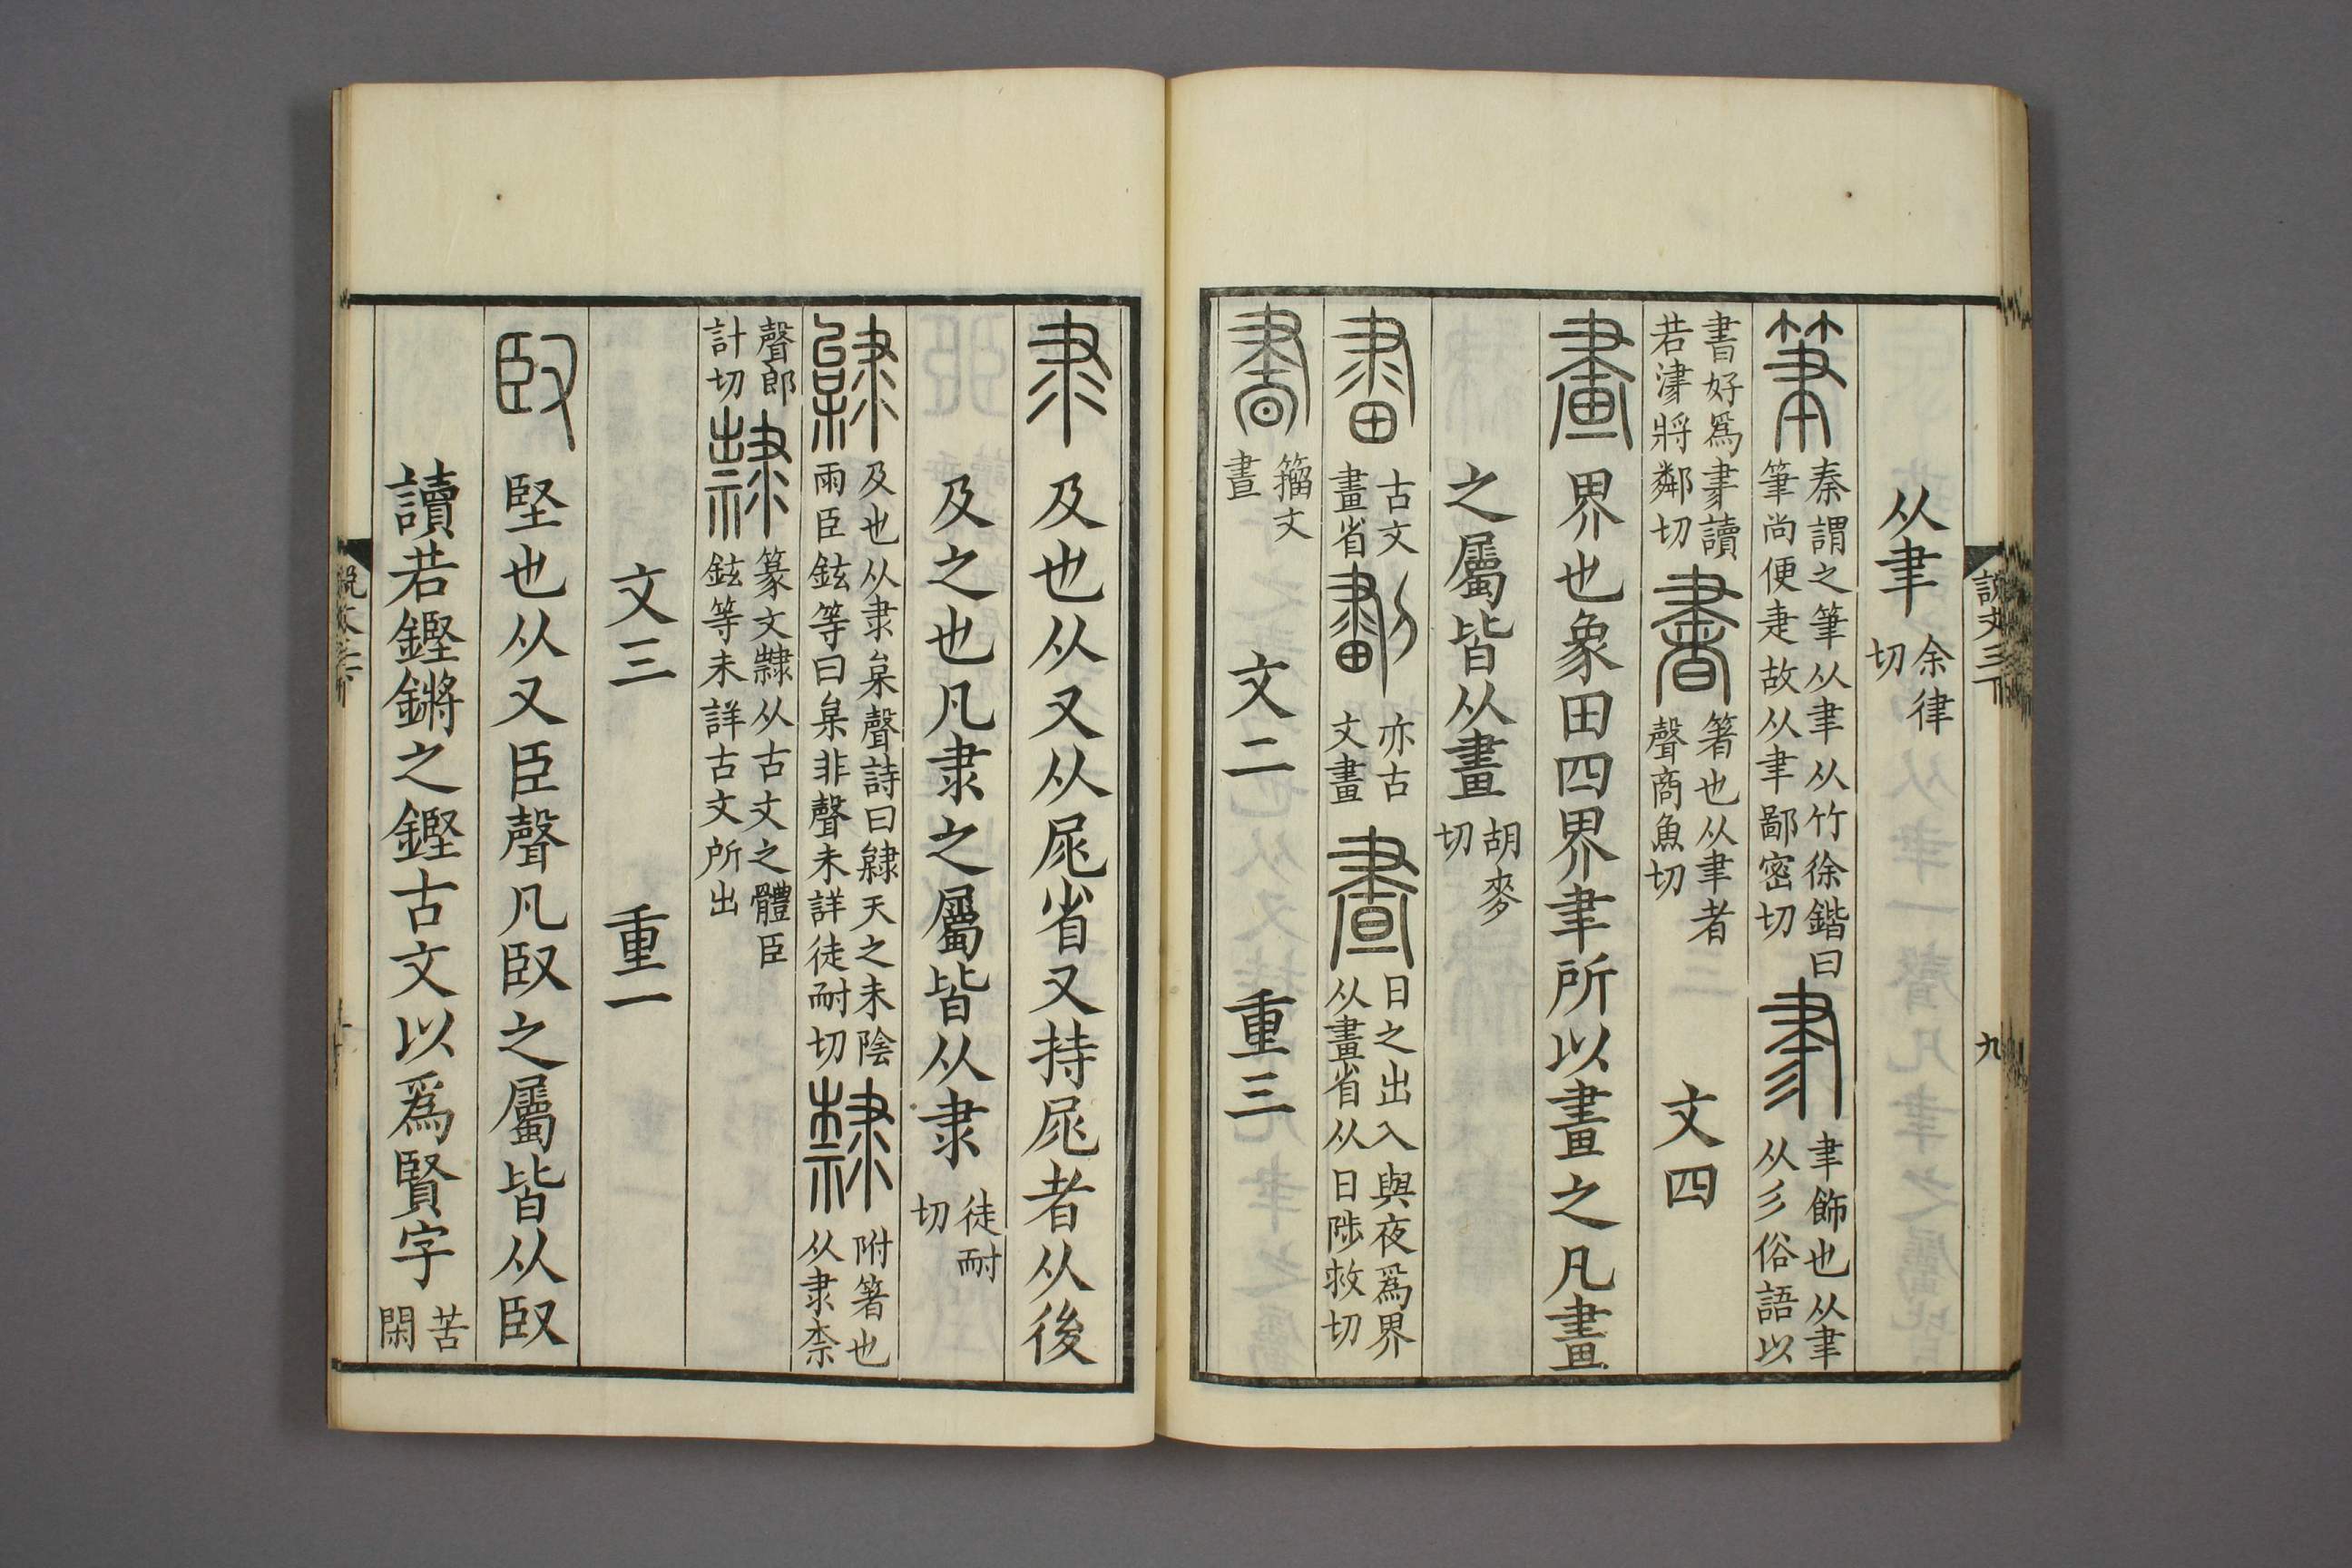 說文三下 九
从聿余律切
筆秦謂之筆从聿从竹徐鍇曰筆尚便疌故从聿鄙密切𦘔聿飾也从聿从彡俗語以
書好爲𦘔讀若津將鄰切書箸也从聿者聲商魚切 文四
畫界也象田四界聿所以畫之凡畫
之屬皆从畫胡麥切
𤲯古文畫省𠟪亦古文畫晝日之出入與夜爲界从畫省从日陟救切
籒文晝 文二 重三
隶及也从又从𡱝省又持𡱝者从後
及之也凡隶之屬皆从隶徒耐切
𨽿及也从隶枲聲詩曰𨽿天之未陰雨臣鉉等曰枲非聲未詳徒耐切隸附箸也从隶柰
聲郎計切𨽸篆文隸从古文之體臣鉉等未詳古文所出
文三 重一
臤堅也从又臣聲凡臤之屬皆从臤
讀若鏗鏘之鏗古文以爲賢字苦閑